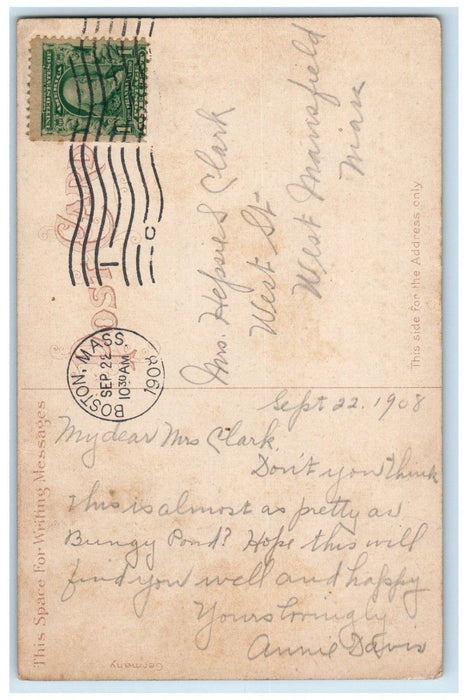 POST CARD
BOSTON, MASS.
SEP 22
10 30 AM
1908
1
C
UNITED STATES OF AMERICA
Mrs. Hepsie S Clark
West St
West Mansfield
Mass
This side for the Address only
This Space For Writing Messages
Sept 22. 1908
My dear Mrs Clark.
Don't you think
this is almost as pretty as
Bungy Pond? Hope this will
find you well and happy
Yours lovingly
Annie Davis
Germany